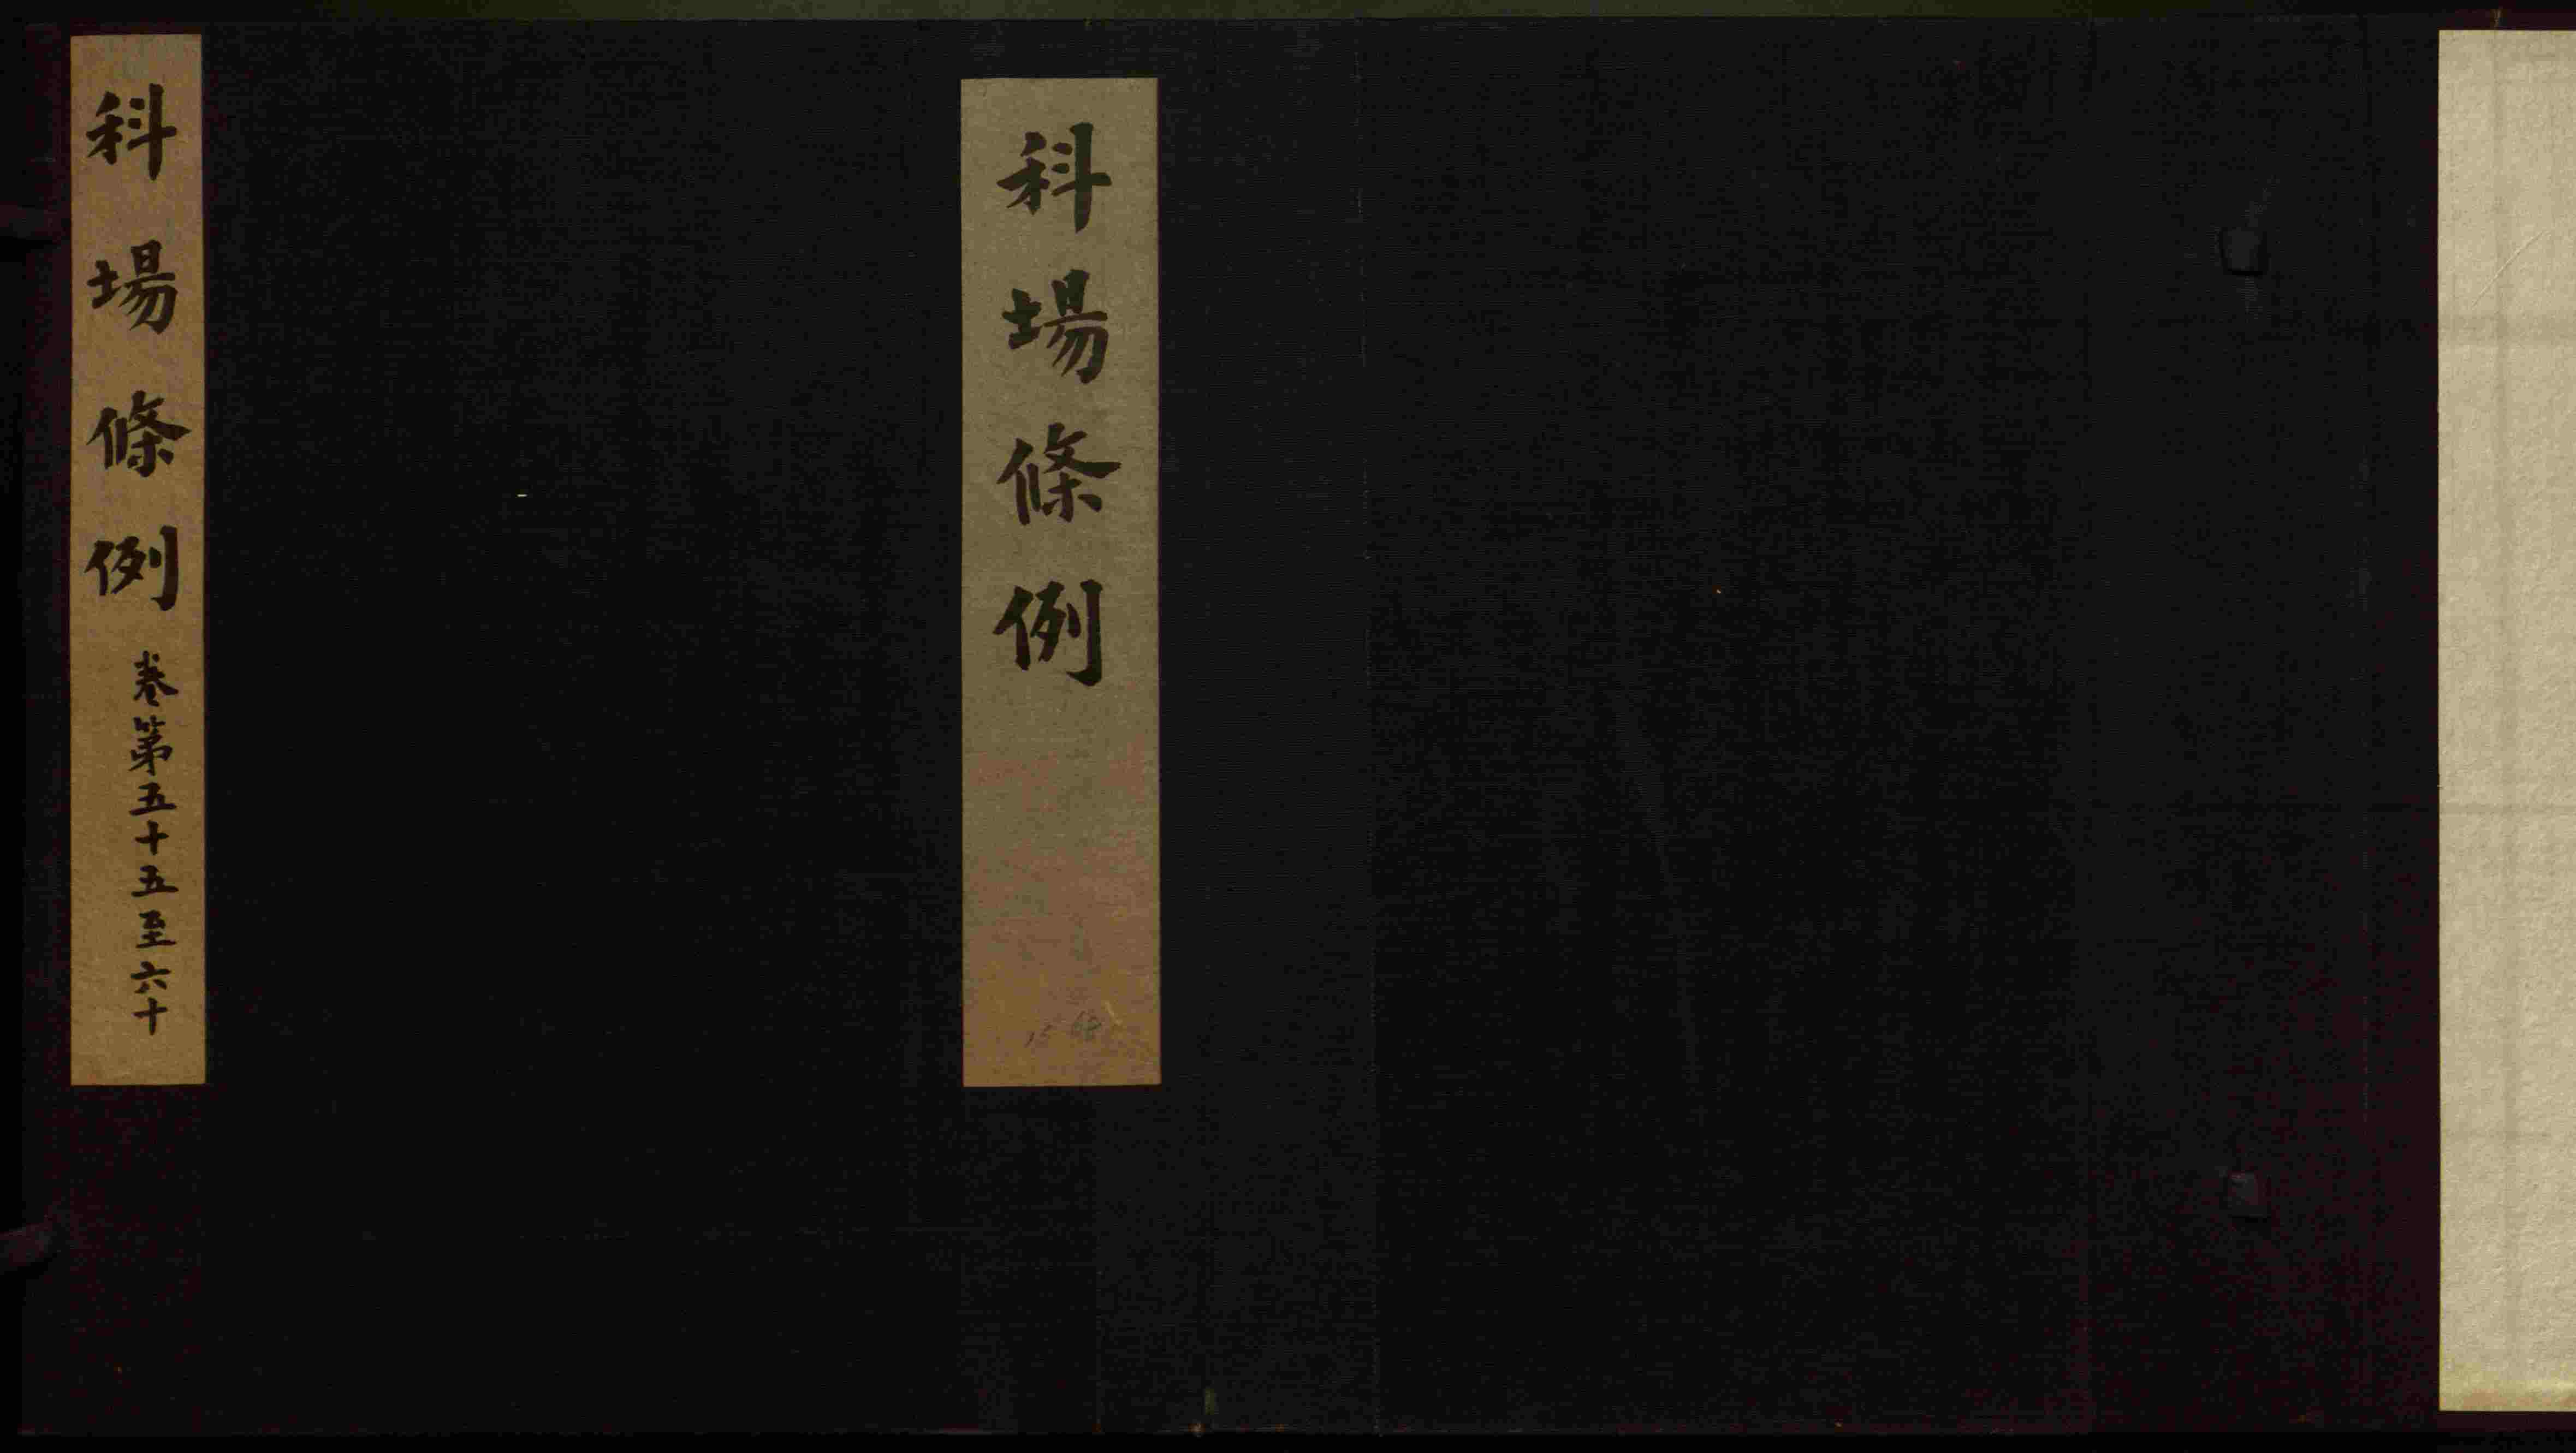 科場條例
科場條例
卷第五十五至六十